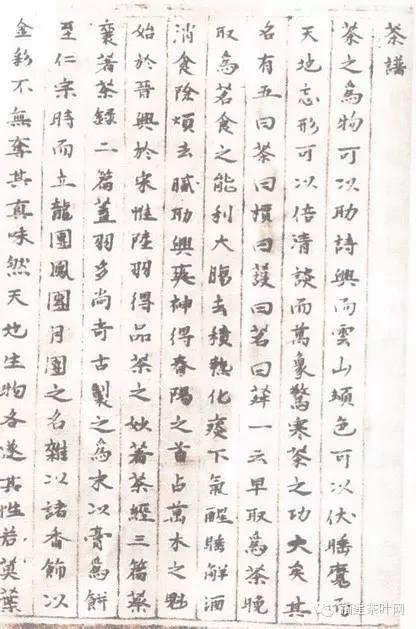 茶譜
茶之為物可以助詩興而雲山頓色可以伏睡魔而
天地忘形可以倍清談而萬象驚寒茶之功大矣其
名有五曰茶曰檟曰蔎曰茗曰荈一云早取為茶晚
取為茗食之能利大腸去積熱化痰下氣醒睡解酒
消食除煩去膩助興爽神得春陽之首占萬木之魁
始於晉興於宋惟陸羽得品茶之妙著茶經三篇蔡
襄著茶錄二篇蓋羽多尚奇古製之為末以膏為餅
至仁宗時而立龍團鳳團月團之名雜以諸香飾以
金彩不無奪其真味然天地生物各遂其性若莫葉
福建茶叶网